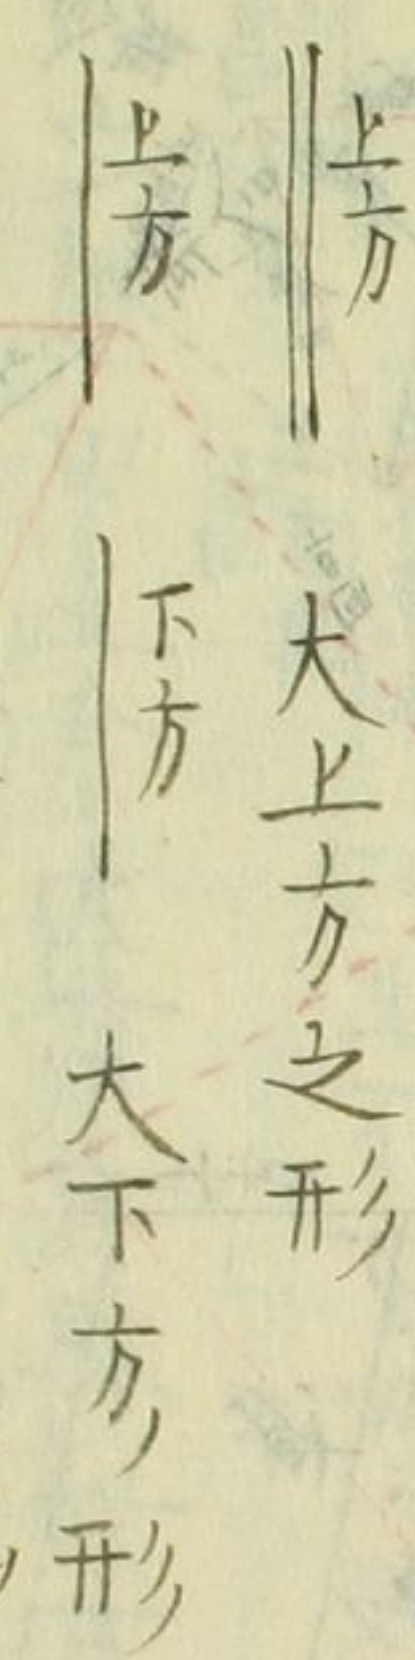 上方 大上方之形
上方 下方 大下方ノ形